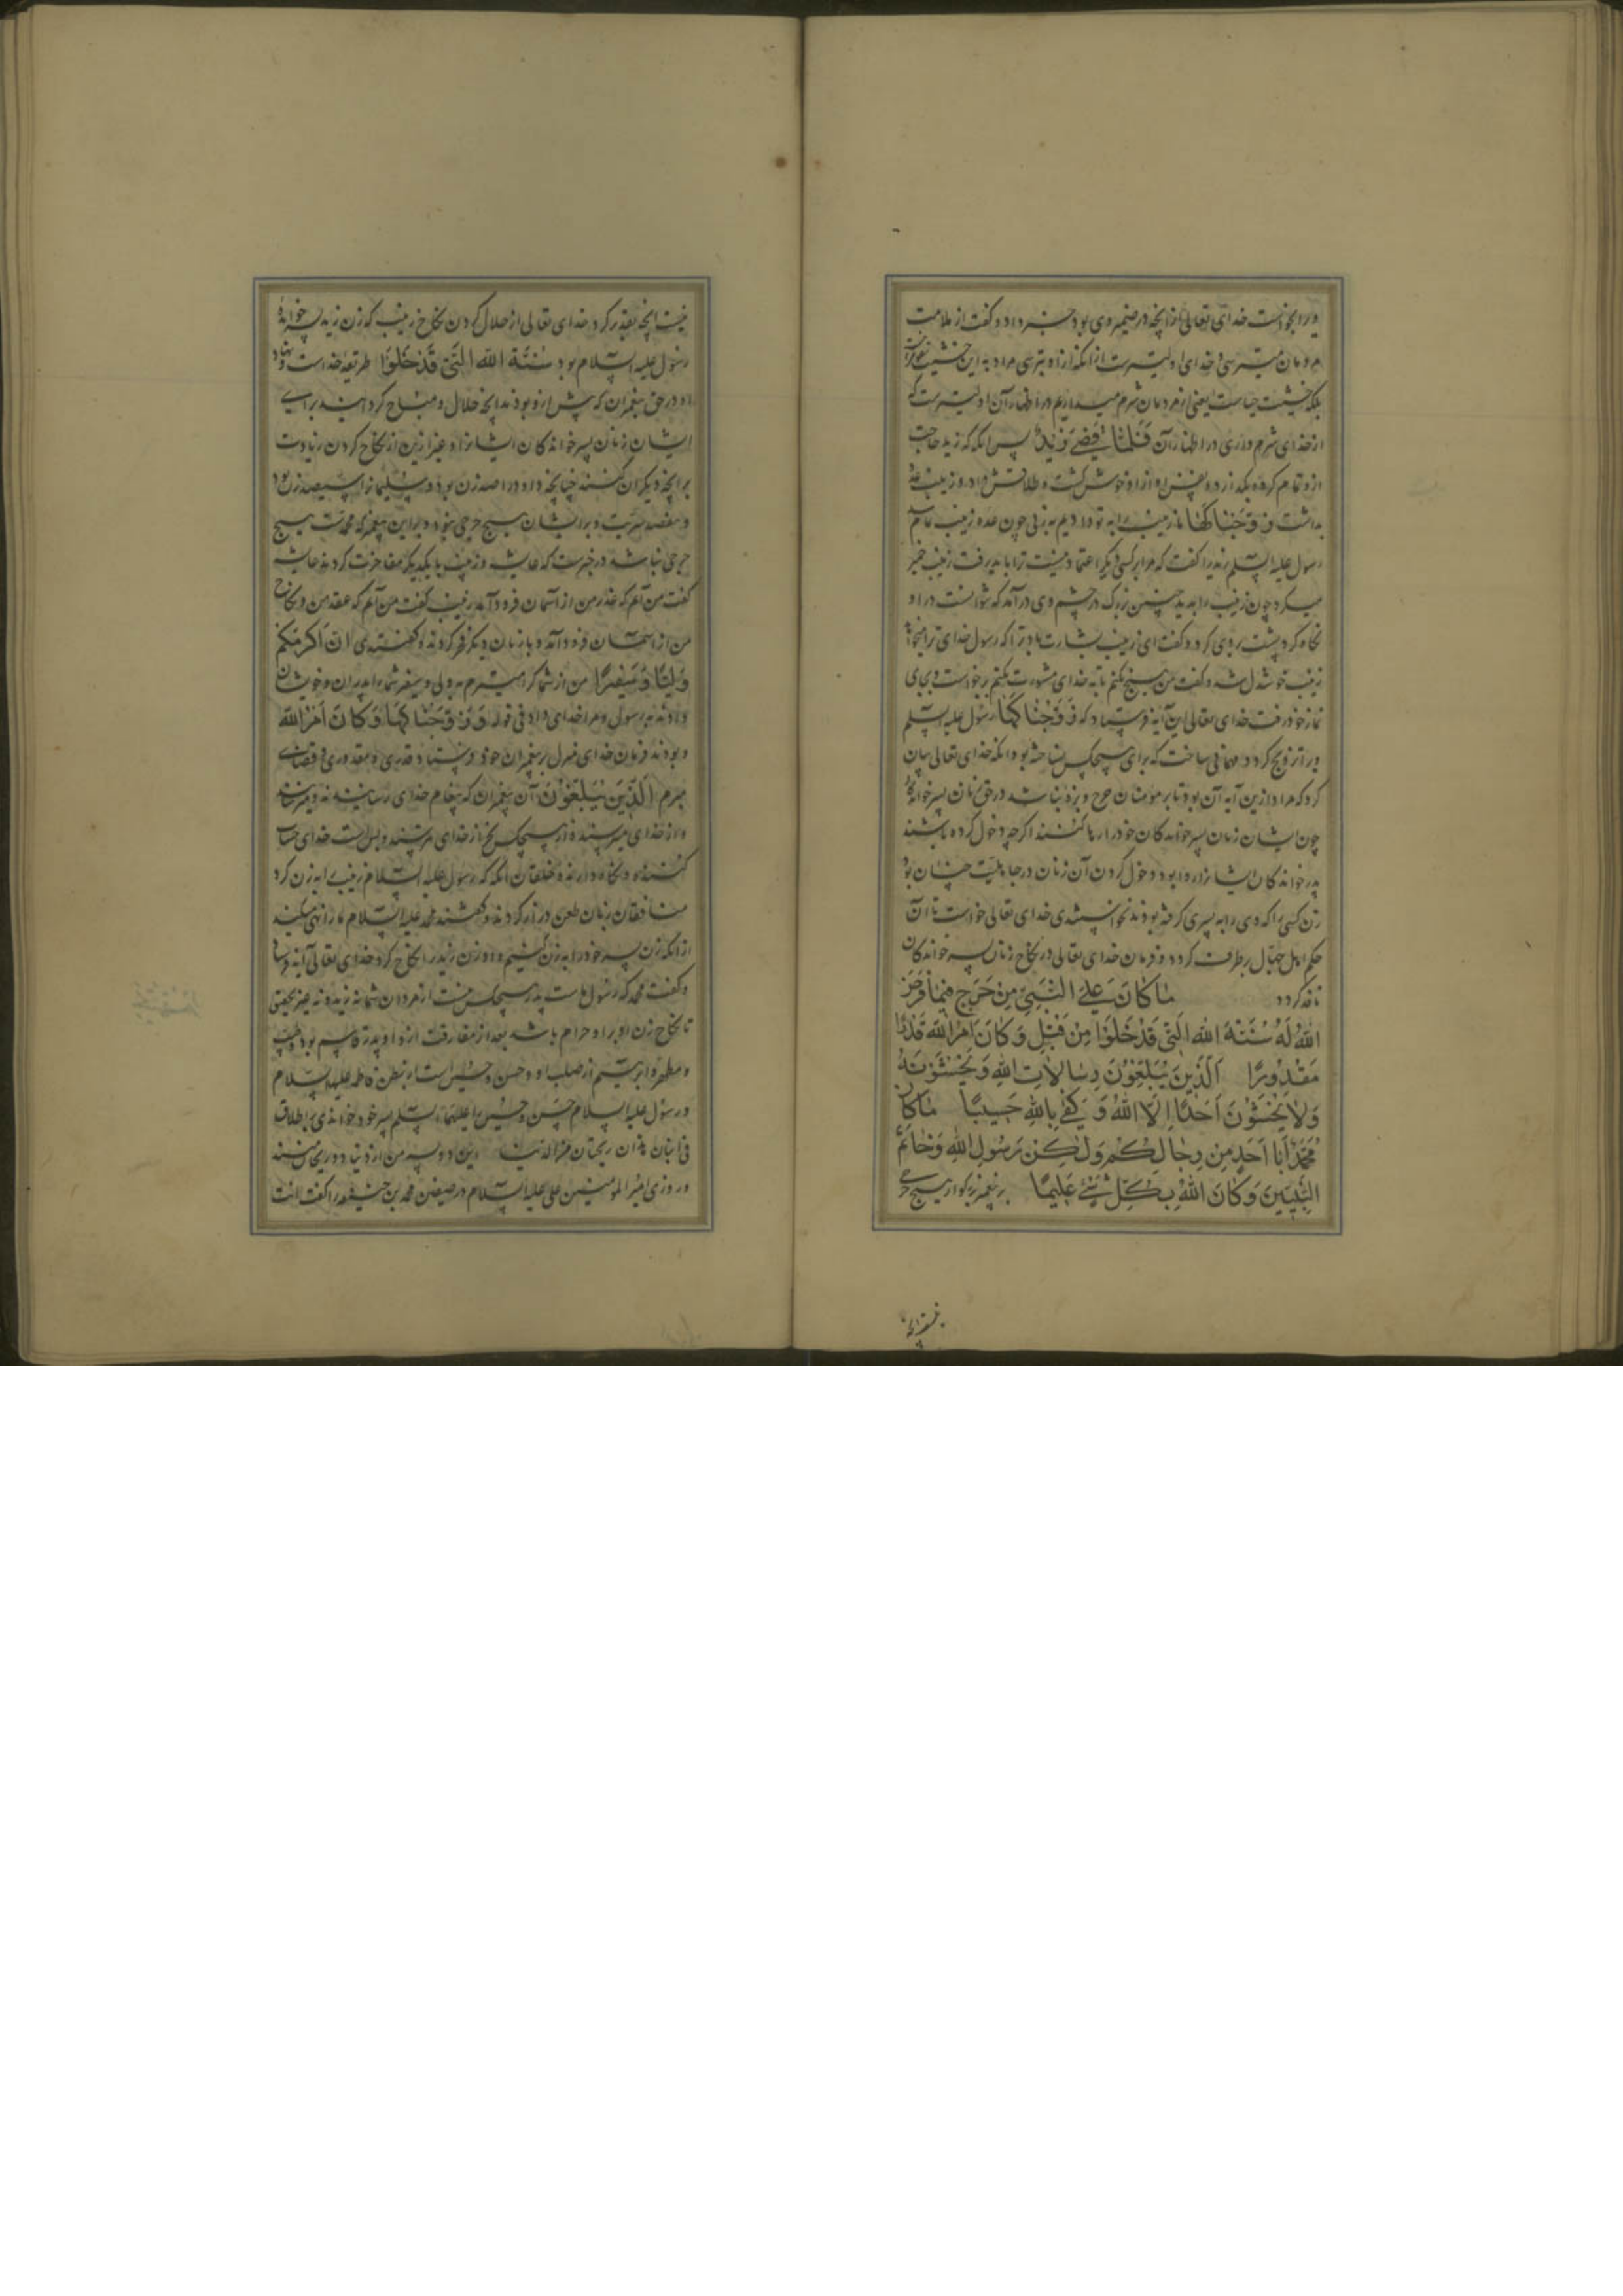 ویرا بخواست خدای تعالی از آنچه در ضمیر وی بود خبر داد و گفت از ملامت
مردمان میترسی و خدای اولیترست از آنکه ازاو بترسی مراد به این خشیت
بلکه خشیت حیاست یعنی از مردمان شرم میداریم در اظهار آن اولیترست که
از خدای شرم داری در اظهار آن فَلَمَّا قَضىٰ زَيْدٌ پس آنکه که زید حاجت
ازو تمام کرد و بلکه از ده نفس او ازاو خوش گشت و طلاقش داد و زینب عده
بداشت زَوَّجْنَاكَهَا ما زینب را به تو دادیم به زنی چون عده زینب تمام شد
رسول علیه السلم زید را گفت که مرا بر کسی دیگر اعتماد نیست ترا باید رفت زینب خمیر
میکرد چون زینب را بدید چنین بزرگ در چشم وی درآمد که نتوانست در او
نگاه کرد پشت بروی کرد و گفت ای زینب بشارت باد ترا که رسول خدای ترا میخواهد
زینب خوشدل شد و گفت من هیچ نکنم تا به خدای مشورت نکنم برخواست و بجای
نماز خود رفت خدای تعالی این آیه فرستاد که زَوَّجْنَاكَهَا رسول علیه السلم
ورا تزویج کرد و مهمانی ساخت که برای هیچکس نساخته بود آنکه خدای تعالی بیان
کرد که مراد ازین آیه آن بود تا بر مؤمنان حرج و بزه نباشد در حق زنان پسرخواندگان
چون ایشان زنان پسرخواندگان خود را رها کنند اگرچه دخول کرده باشند
پدرخواندگان ایشانرا روا بود دخول کردن آن زنان در جاهلیت چنان بود
زن کسی را که وی را به پسری گرفته بودند نخواستندی خدای تعالی خواست تا آن
حکم اهل جهال برطرف گردد و فرمان خدای تعالی در نکاح زنان پسرخواندگان
نافذ گردد مَا كَانَ عَلَى النَّبِيِّ مِنْ حَرَجٍ فِيمَا فَرَضَ
اللّٰهُ لَهُ سُنَّةَ اللّٰهِ الَّتِي قَدْ خَلَوْا مِنْ قَبْلُ وَكَانَ أَمْرُ اللّٰهِ قَدَرًا
مَقْدُورًا الَّذِينَ يُبَلِّغُونَ رِسَالَاتِ اللّٰهِ وَيَخْشَوْنَهُ
وَلَا يَخْشَوْنَ أَحَدًا إِلَّا اللّٰهَ وَكَفىٰ بِاللّٰهِ حَسِيبًا مَا كَانَ
مُحَمَّدٌ أَبَا أَحَدٍ مِنْ رِجَالِكُمْ وَلٰكِنْ رَسُولَ اللّٰهِ وَخَاتَمَ
النَّبِيِّينَ وَكَانَ اللّٰهُ بِكُلِّ شَيْءٍ عَلِيمًا بر پیغمبر بزرگوار هیچ حرجی
نیست آنچه
نیست آنچه تقدیر کرد خدای تعالی از حلال کردن نکاح زینب که زن زید پسر خوانده
رسول علیه السلام بود سُنَّةَ اللّٰهِ الَّتِي قَدْ خَلَوْا طریقه خداست و نهاد
او در حق پیغمبران که پیش ازو بودند آنچه حلال و مباح گردانید برای
ایشان زنان پسرخواندگان ایشانرا و غیر ازین از نکاح کردن زیادت
بر آنچه دیگران کنند چنانچه داود را صد زن بود و سلیمانرا سیصد زن بود
و هفتصد سریت و بر ایشان هیچ حرجی نبود و براین پیغمبر که محمدست هیچ
حرجی نباشد در خبرست که عایشه و زینب با یکدیگر مفاخرت کردند عایشه
گفت من آنم که عذر من از آسمان فرود آمد زینب گفت من آنم که عقد من و نکاح
من از آسمان فرود آمد و با زنان دیگر فخر کردند و گفتندی ان اَكْرَمَكُمْ
وَلِيًّا وَسَفِيرًا من از شما گرامیترم به ولی و سفیر شما را پدران و خویشان
دادند به رسول و مرا خدای داد فی قوله وَزَوَّجْنَاكَهَا وَكَانَ أَمْرُ اللّٰهِ
و بودند فرمان خدای منزل بر پیغمبران خود فرستاد قدری و مقدوری و قضای
مبرم الَّذِينَ يُبَلِّغُونَ آن پیغمبران که پیغام خدای رسانیدند و میرسانند
و از خدای میترسند و از هیچکس بجز از خدای نترسند و بس است خدای حساب
کننده و نگاه دارنده خلقان آنگه که رسول علیه السلام زینب را به زن کرد
منافقان زبان طعن دراز کردند و گفتند محمد علیه السلام ما را نهی میکند
از آنکه زن پسر خود را به زن کنیم و او زن زید را نکاح کرد خدای تعالی آیه فرستاد
و گفت محمد که رسول ماست پدر هیچکس نیست از مردان شما نه زید و نه غیر زید حقیقی
تا نکاح زن او بر او حرام باشد بعد از مفارقت ازو او پدر قاسم بود و طیب
و مطهر و ابرهیم از صلب او و حسن و حسین است از بطن فاطمه علیها السلام
و رسول علیه السلام حسن و حسین را علیهما السلم پسر خود خواندی بر اطلاق
فی ابنان هذان ریحانتان من الدنیا این دو پسر من از دنیا دو ریحان منند
و روزی امیر المومنین علی علیه السلام در صفین محمد بن حنیفه را گفت انت